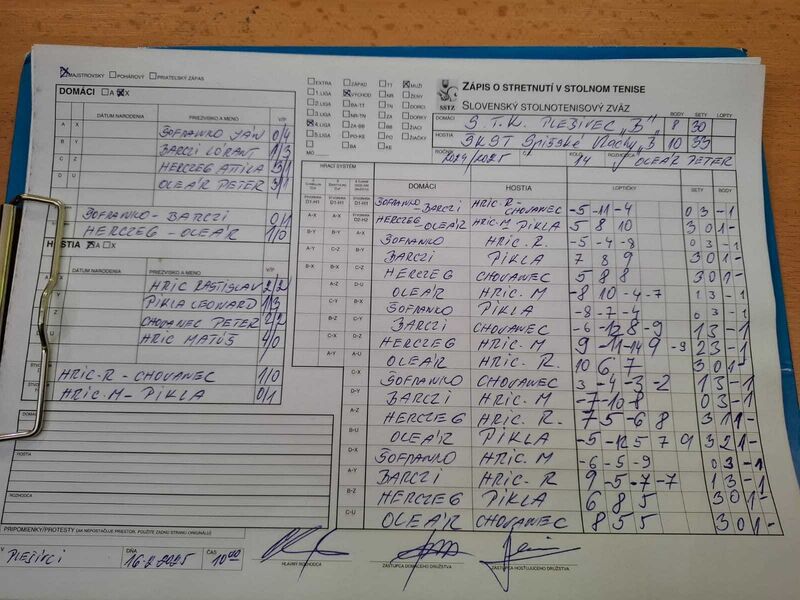 ☒MAJSTROVSKÝ ☐POHÁROVÝ ☐PRIATEĽSKÝ ZÁPAS
DOMÁCI ☐A ☒X
DÁTUM NARODENIA PRIEZVISKO A MENO V/P
A X ŠOFRANKO JÁN 0/4
B Y BARCZI LÓRANT 1/3
C Z HERCZEG ATTILA 3/1
D U OLEÁR PETER 3/1
ŠOFRANKO - BARCZI 0/1
HERCZEG - OLEÁR 1/0
HOSTIA ☒A ☐X
DÁTUM NARODENIA PRIEZVISKO A MENO V/P
HRIC RASTISLAV 2/2
PIKLA LEONARD 1/3
CHOVANEC PETER 2/2
HRIC MATÚŠ 4/0
HRIC.R - CHOVANEC 1/0
HRIC.M - PIKLA 0/1
DOMÁCI
HOSTIA
ROZHODCA
PRIPOMIENKY/PROTESTY (AK NEPOSTAČUJE PRIESTOR, POUŽITE ZADNÚ STRANU ORIGINÁLU)
V PLEŠIVCI DŇA 16.2.2025 ČAS 10:00
HLAVNÝ ROZHODCA
ZÁSTUPCA DOMÁCEHO DRUŽSTVA
ZÁSTUPCA HOSŤUJÚCEHO DRUŽSTVA
☐EXTRA ☐ZÁPAD ☐TT ☒MUŽI
☐1.LIGA ☒VÝCHOD ☐NR ☐ŽENY
☐2.LIGA ☐BA-TT ☐TN ☐DORCI
☐3.LIGA ☐NR-TN ☐ZA ☐DORKY
☒4.LIGA ☐ZA-BB ☐BB ☐ŽIACI
☐5.LIGA ☐PO-KE ☐PO ☐ŽIAČKY
☐ ☐BA ☐KE
MO
SSTZ
ZÁPIS O STRETNUTÍ V STOLNOM TENISE
SLOVENSKÝ STOLNOTENISOVÝ ZVÄZ BODY SETY LOPTY
DOMÁCI S.T.K. PLEŠIVEC „B" 8 30
HOSTIA SKST Spišské Vlachy „B 10 33
ROČNÍK 2024/2025 KOLO 14 ROZHODCA OLEÁR PETER
HRACÍ SYSTÉM
DOMÁCI HOSTIA LOPTIČKY SETY BODY
ŠOFRANKO BARCZI HRIC.R- CHOVANEC -5 -11 -4 0 3 -1
HERCZEG -OLEÁR HRIC.M PIKLA 5 8 10 3 0 1-
ŠOFRANKO HRIC.R. -5 -4 -8 0 3 -1
BARCZI PIKLA 7 8 9 3 0 1-
HERCZEG CHOVANEC 5 8 8 3 0 1-
OLEÁR HRIC.M -8 10 -4 -7 1 3 -1
ŠOFRANKO PIKLA -8 -7 -4 0 3 -1
BARCZI CHOVANEC -6 -12 8 -9 1 3 -1
HERCZEG HRIC.M 9 -11 -14 9 -9 2 3 -1
OLEÁR HRIC.R. 10 6 7 3 0 1-
ŠOFRANKO CHOVANEC 3 -4 -3 -2 1 3 -1
BARCZI HRIC.M -7 -10 -8 0 3 -1
HERCZEG HRIC.R. 7 5 -6 8 3 1 1-
OLEÁR PIKLA -5 -12 5 7 9 3 2 1-
ŠOFRANKO HRIC.M -6 -5 -9 0 3 -1
BARCZI HRIC.R 9 -5 -7 -7 1 3 -1
HERCZEG PIKLA 6 8 5 3 0 1-
OLEÁR CHOVANEC 8 5 5 3 0 1-